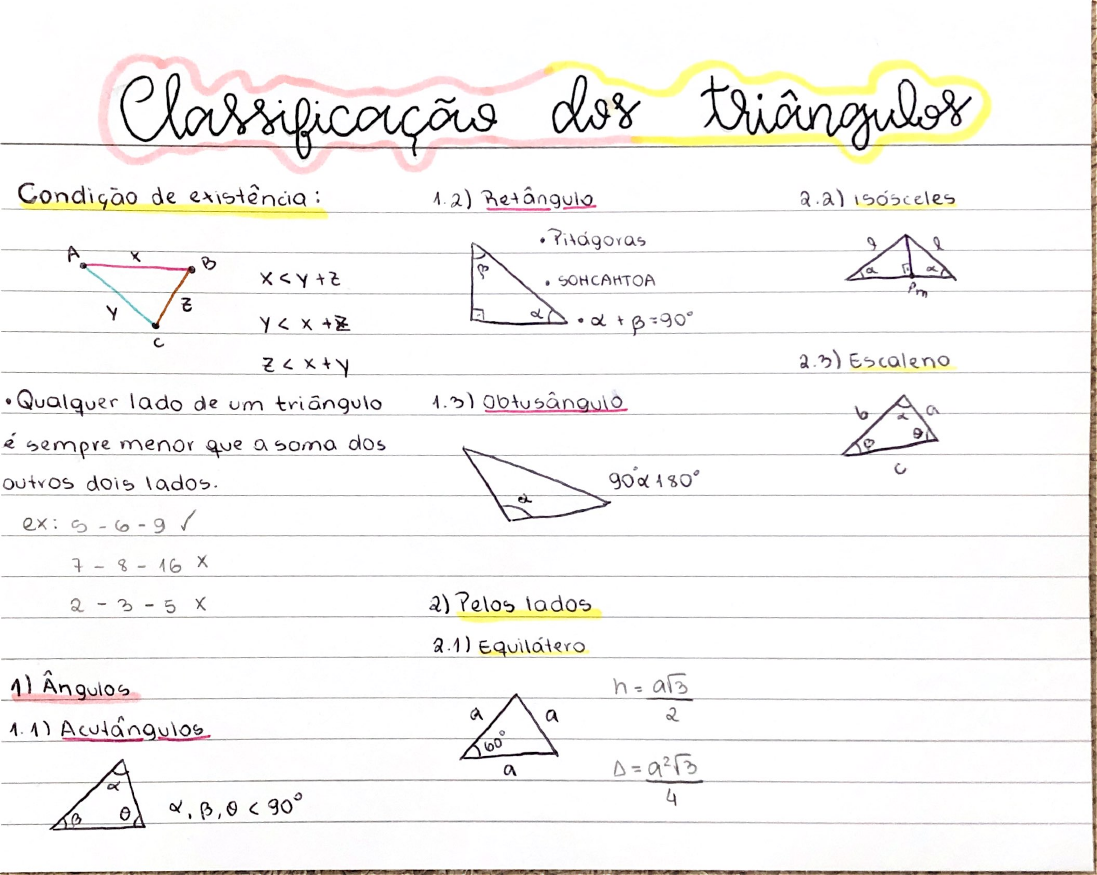 Classificação dos triângulos
Condição de existência:
A
x
B
y
z
C
x < y + z
y < x + z
z < x + y
• Qualquer lado de um triângulo
é sempre menor que a soma dos
outros dois lados.
ex: 5 - 6 - 9 ✓
7 - 8 - 16 x
2 - 3 - 5 x
1) Ângulos
1.1) Acutângulos
α
β
θ
α, β, θ < 90°
1.2) Retângulo
• Pitágoras
β
• SOHCAHTOA
α
• α + β = 90°
1.3) Obtusângulo
α
90°α180°
2) Pelos lados
2.1) Equilátero
a
a
60°
a
h = a√3
2
Δ = a²√3
4
2.2) isósceles
l
α
α
Pm
2.3) Escaleno
b
α
a
β
θ
c